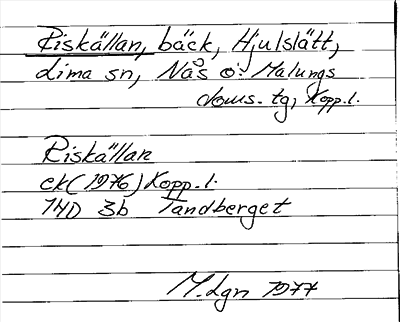 Riskällan, bäck, Hjulslätt,
Lima sn, Nås o. Malungs
doms. tg, Kopp.l.
Riskällan
ek (1976) Kopp.l.
14D 3b Tandberget
M.Lgn 1977